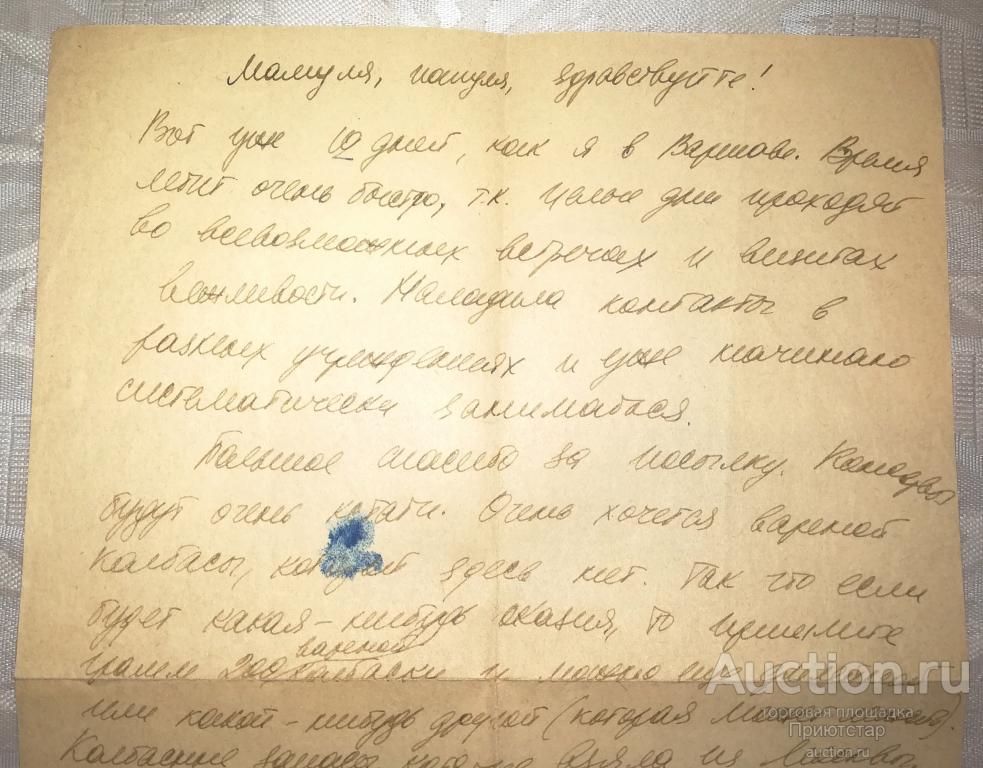 Мамуля, папуля, здравствуйте!
Вот уже 10 дней, как я в Варшаве. Время
летит очень быстро, т.к. целые дни проходят
во всевозможных встречах и визитах
вежливости. Наладила контакты в
разных учреждениях и уже начинаю
систематически заниматься.
Большое спасибо за посылку. Колодвы
будут очень кстати. Очень хочется вареной
колбасы, которой здесь нет. Так что если
будет какая-нибудь оказия, то пришлите
вареной
грамм 200 колбаски и можно еще
или какой-нибудь другой (которая
Колбасные запасы взяла из
Auction.ru
торговая площадка
Приютстар
auction.ru